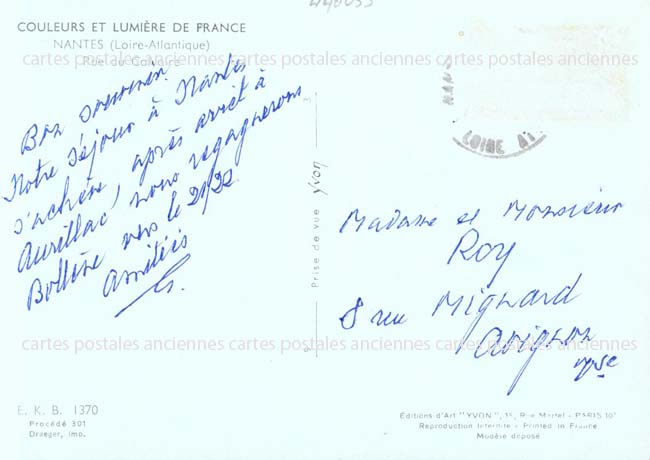 440055
COULEURS ET LUMIÈRE DE FRANCE
NANTES (Loire-Atlantique)
Rue du Calvaire
cartes postales anciennes cartes postales anciennes cartes postales anciennes
Bon souvenir.
Notre séjour à Nantes
s'achève, après arrêt à
Aurillac, nous regagnerons
Bollène vers le 21/22
Amitiés
G.
Prise de vue yvon
LOIRE AT
Madame et Monsieur
ROY
8 rue Mignard
Avignon
vse
cartes postales anciennes cartes postales anciennes cartes postales anciennes
E. K. B. 1370
Procédé 301
Draeger, imp.
Éditions d'Art "YVON", 15, Rue Martel - PARIS 10e
Reproduction Interdite - Printed in France
Modèle déposé